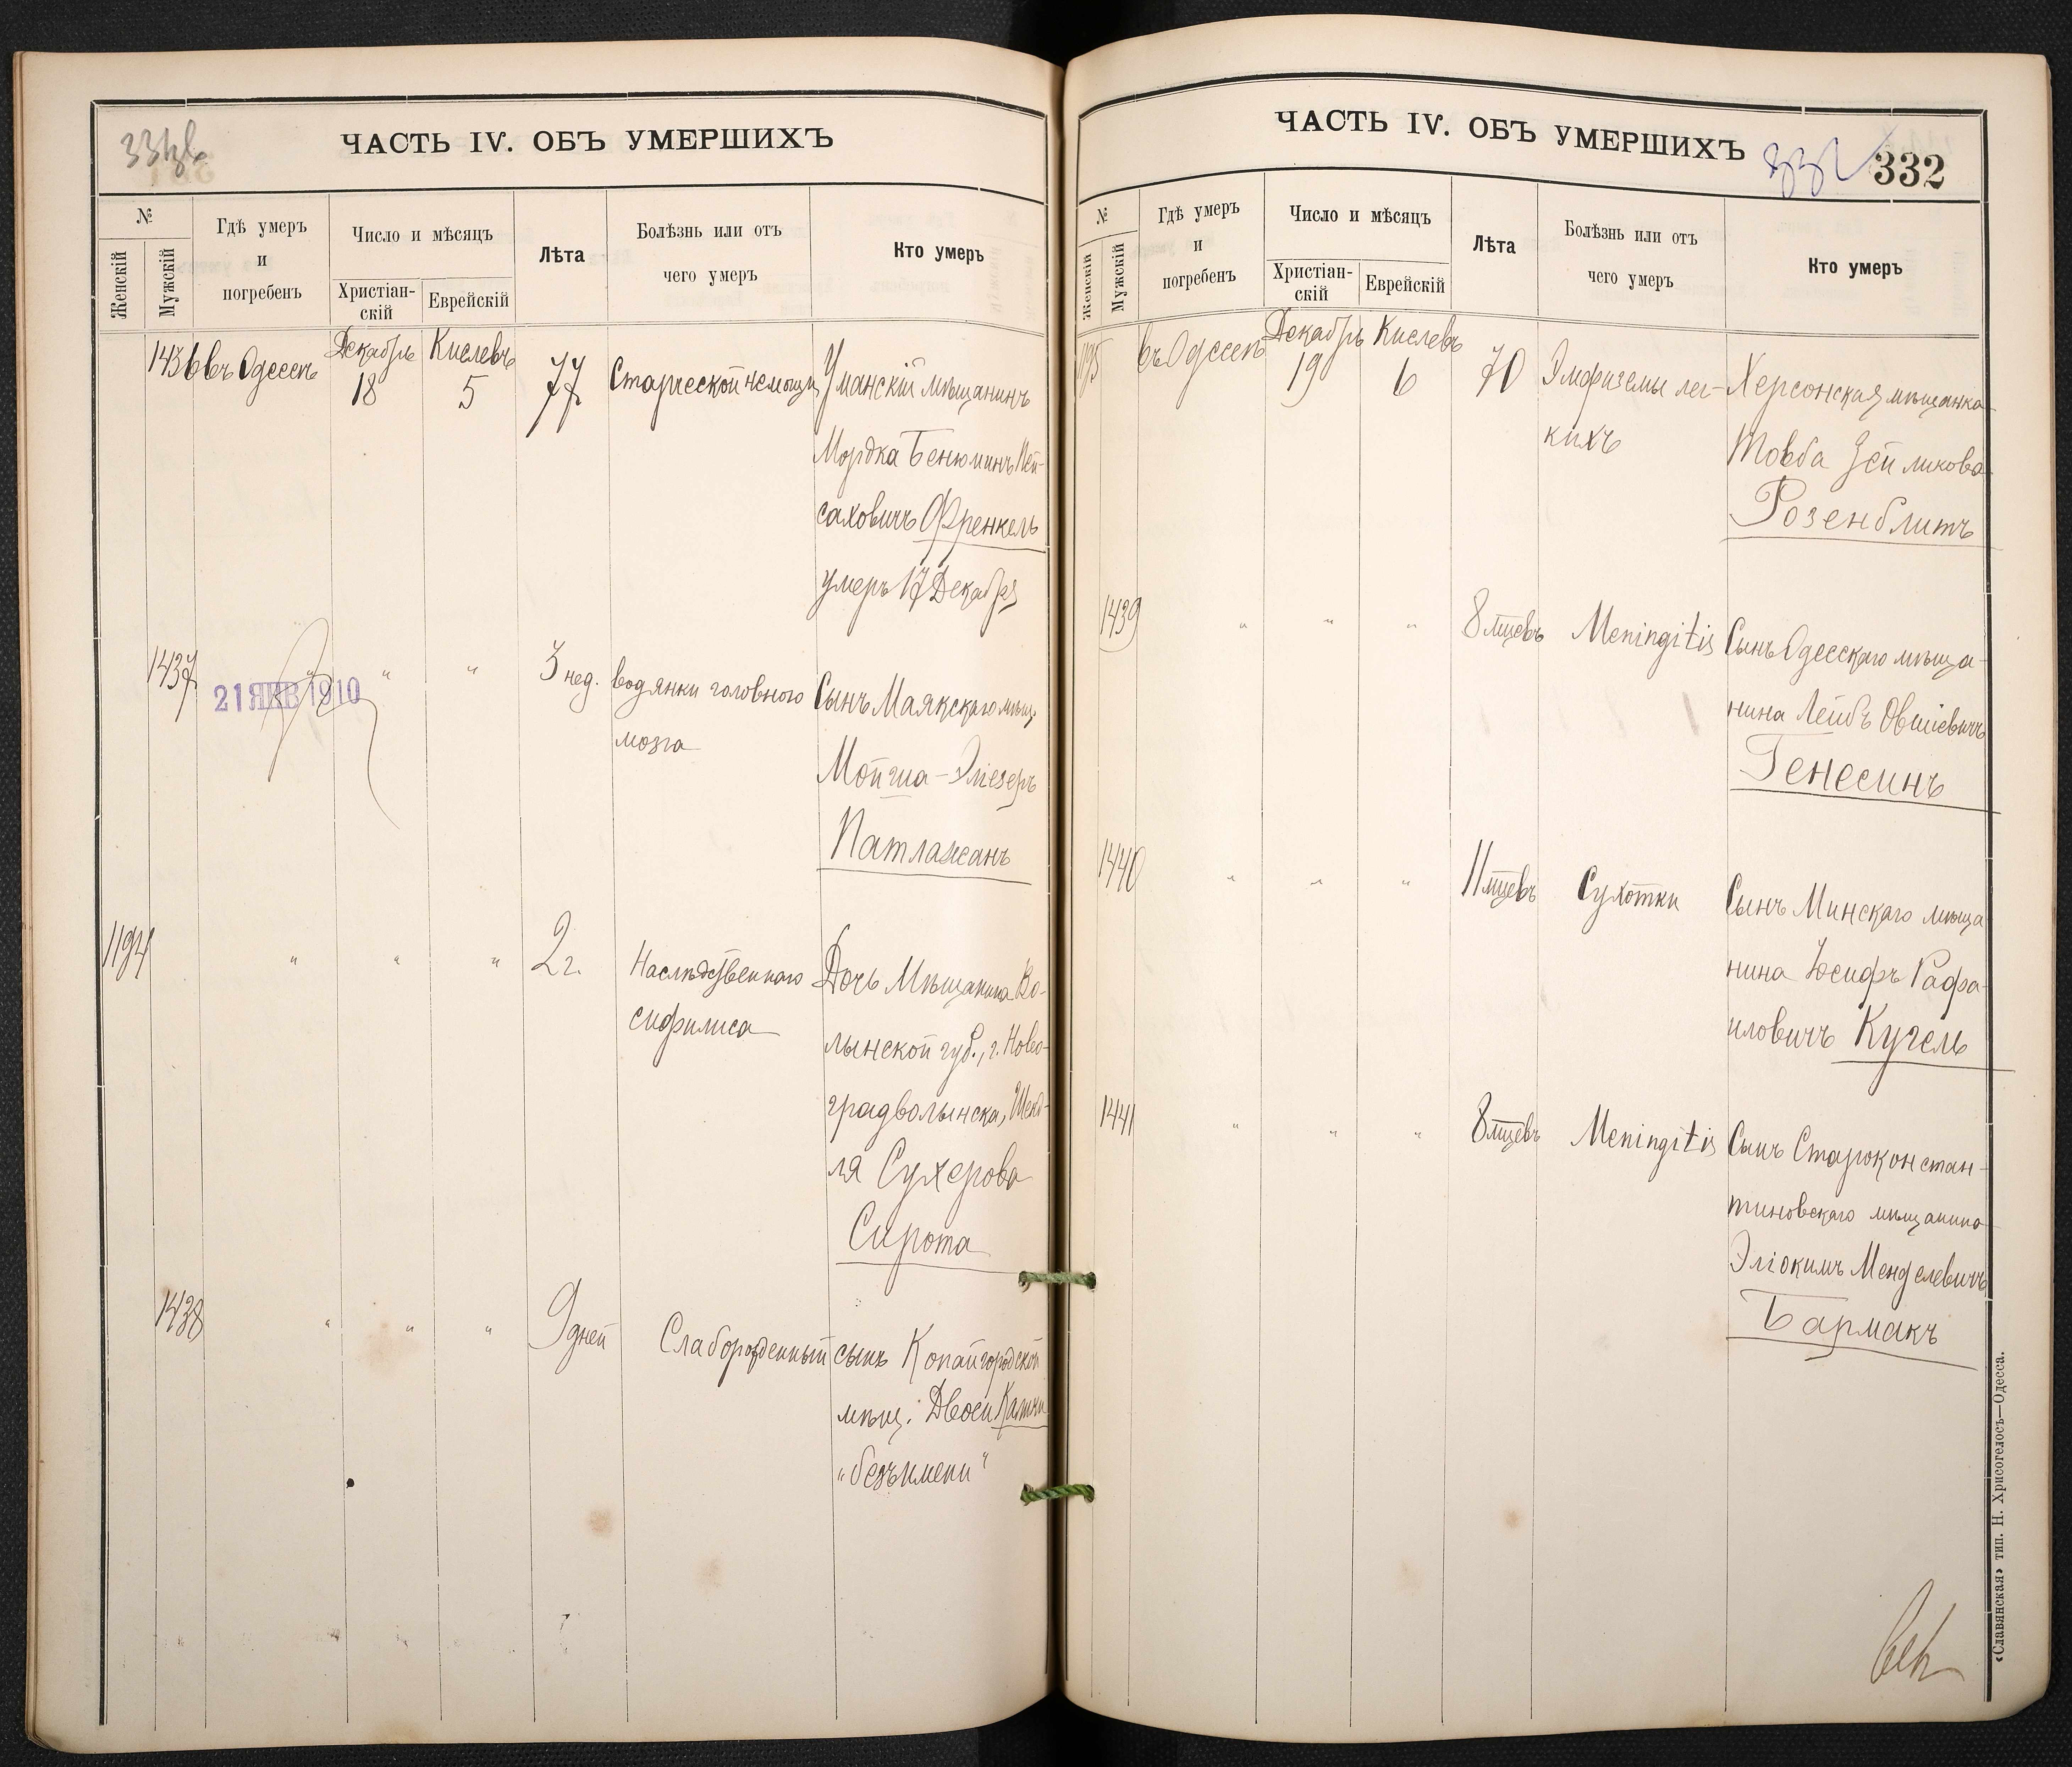 ЧАСТЬ IV. ОБЪ УМЕРШИХЪ
№
Женскій
Мужскій
Гдѣ умеръ
и
погребенъ
Число и мѣсяцъ
Христіан-
скій
Еврейскій
Лѣта
Болѣзнь или отъ
чего умеръ
Кто умеръ
1436 въ Одессѣ Декабрь 18 Кислевъ 5 77 Старческой немощи Уманскій мѣщанинъ
Мордка Бенюминъ Пей-
саховичъ Френкель
умеръ 17 Декабря
1437 " " " 3 нед. водянки головного Сынъ Маякскаго мѣщ.
мозга
21 ЯНВ 1910
Мойша-Эліезеръ
Патлажанъ
1194 " " " 2 г. Наслѣдственнаго Дочь Мѣщанина Во-
сифилиса
лынской губ., г. Ново-
градволынска, Шейд-
ля Сухерова
Сирота
1438 " " " 9 дней Слаборожденный сынъ Копайгородской
мѣщ. Двоси
"безъ имени"
ЧАСТЬ IV. ОБЪ УМЕРШИХЪ
332 332
№
Женскій
Мужскій
Гдѣ умеръ
и
погребенъ
Число и мѣсяцъ
Христіан-
скій
Еврейскій
Лѣта
Болѣзнь или отъ
чего умеръ
Кто умеръ
1195 въ Одессѣ Декабрь 19 Кислевъ 6 70 Эмфиземы лег- Херсонская мѣщанка
кихъ
Товба Зейликова
Розенблитъ
1439 " " " 8 мцевъ Meningitis Сынъ Одесскаго мѣща-
нина Лейбъ Овшіевичъ
Генесинъ
1440 " " " 11 мцевъ Сухотки Сынъ Минскаго мѣща
нина Іосифъ Рафа-
иловичъ Кугель
1441 " " " 8 мцевъ Meningitis Сынъ Староконстан-
тиновскаго мѣщанина
Эліокимъ Менделевичъ
Бармакъ
«Славянская» тип. Н. Хрисогелосъ—Одесса.